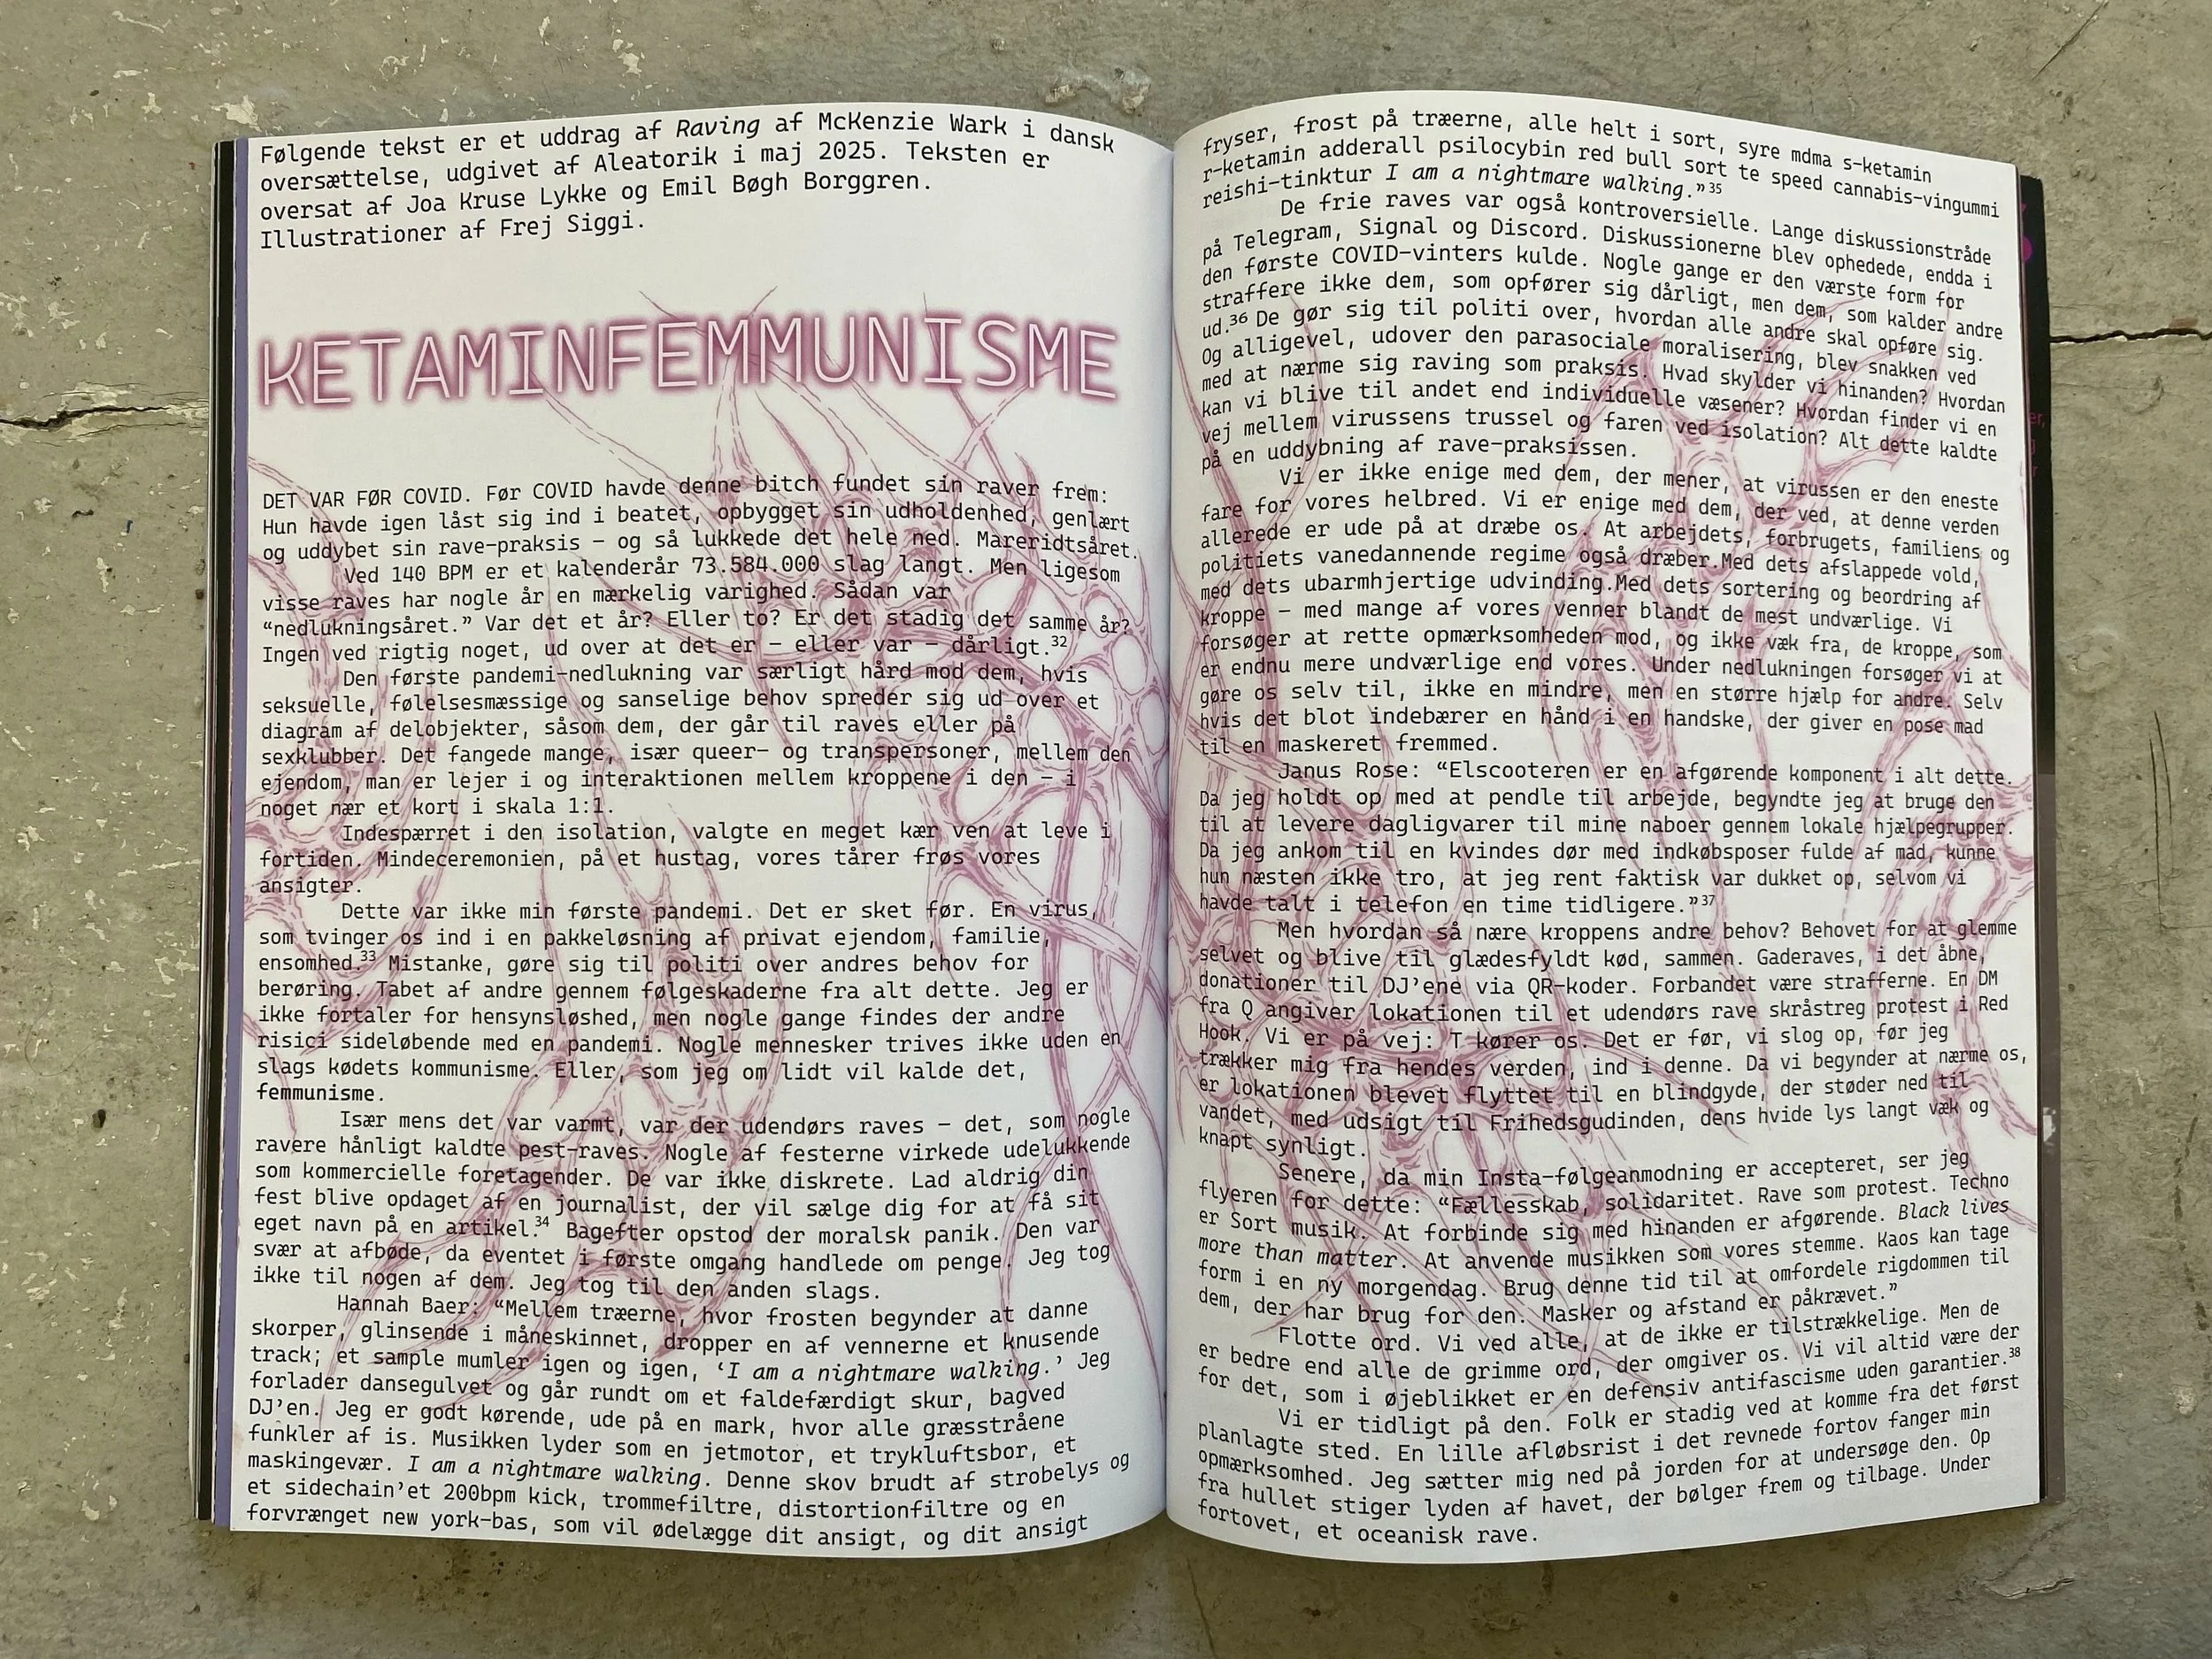 Følgende tekst er et uddrag af Raving af McKenzie Wark i dansk
oversættelse, udgivet af Aleatorik i maj 2025. Teksten er
oversat af Joa Kruse Lykke og Emil Bøgh Borggren.
Illustrationer af Frej Siggi.
KETAMINFEMMUNISME
DET VAR FØR COVID. Før COVID havde denne bitch fundet sin raver frem:
Hun havde igen låst sig ind i beatet, opbygget sin udholdenhed, genlært
og uddybet sin rave-praksis – og så lukkede det hele ned. Mareridtsåret.
Ved 140 BPM er et kalenderår 73.584.000 slag langt. Men ligesom
visse raves har nogle år en mærkelig varighed. Sådan var
“nedlukningsåret.” Var det et år? Eller to? Er det stadig det samme år?
Ingen ved rigtig noget, ud over at det er – eller var – dårligt.³²
Den første pandemi-nedlukning var særligt hård mod dem, hvis
seksuelle, følelsesmæssige og sanselige behov spreder sig ud over et
diagram af delobjekter, såsom dem, der går til raves eller på
sexklubber. Det fangede mange, især queer- og transpersoner, mellem den
ejendom, man er lejer i og interaktionen mellem kroppene i den – i
noget nær et kort i skala 1:1.
Indespærret i den isolation, valgte en meget kær ven at leve i
fortiden. Mindeceremonien, på et hustag, vores tårer frøs vores
ansigter.
Dette var ikke min første pandemi. Det er sket før. En virus,
som tvinger os ind i en pakkeløsning af privat ejendom, familie,
ensomhed.³³ Mistanke, gøre sig til politi over andres behov for
berøring. Tabet af andre gennem følgeskaderne fra alt dette. Jeg er
ikke fortaler for hensynsløshed, men nogle gange findes der andre
risici sideløbende med en pandemi. Nogle mennesker trives ikke uden en
slags kødets kommunisme. Eller, som jeg om lidt vil kalde det,
femmunisme.
Især mens det var varmt, var der udendørs raves – det, som nogle
ravere hånligt kaldte pest-raves. Nogle af festerne virkede udelukkende
som kommercielle foretagender. De var ikke diskrete. Lad aldrig din
fest blive opdaget af en journalist, der vil sælge dig for at få sit
eget navn på en artikel.³⁴ Bagefter opstod der moralsk panik. Den var
svær at afbøde, da eventet i første omgang handlede om penge. Jeg tog
ikke til nogen af dem. Jeg tog til den anden slags.
Hannah Baer: “Mellem træerne, hvor frosten begynder at danne
skorper, glinsende i måneskinnet, dropper en af vennerne et knusende
track; et sample mumler igen og igen, ‘I am a nightmare walking.’ Jeg
forlader dansegulvet og går rundt om et faldefærdigt skur, bagved
DJ’en. Jeg er godt kørende, ude på en mark, hvor alle græsstråene
funkler af is. Musikken lyder som en jetmotor, et trykluftsbor, et
maskingevær. I am a nightmare walking. Denne skov brudt af strobelys og
et sidechain’et 200bpm kick, trommefiltre, distortionfiltre og en
forvrænget new york-bas, som vil ødelægge dit ansigt, og dit ansigt
fryser, frost på træerne, alle helt i sort, syre mdma s-ketamin
r-ketamin adderall psilocybin red bull sort te speed cannabis-vingummi
reishi-tinktur I am a nightmare walking.”³⁵
De frie raves var også kontroversielle. Lange diskussionstråde
på Telegram, Signal og Discord. Diskussionerne blev ophedede, endda i
den første COVID-vinters kulde. Nogle gange er den værste form for
straffere ikke dem, som opfører sig dårligt, men dem, som kalder andre
ud.³⁶ De gør sig til politi over, hvordan alle andre skal opføre sig.
Og alligevel, udover den parasociale moralisering, blev snakken ved
med at nærme sig raving som praksis. Hvad skylder vi hinanden? Hvordan
kan vi blive til andet end individuelle væsener? Hvordan finder vi en
vej mellem virussens trussel og faren ved isolation? Alt dette kaldte
på en uddybning af rave-praksissen.
Vi er ikke enige med dem, der mener, at virussen er den eneste
fare for vores helbred. Vi er enige med dem, der ved, at denne verden
allerede er ude på at dræbe os. At arbejdets, forbrugets, familiens og
politiets vanedannende regime også dræber.Med dets afslappede vold,
med dets ubarmhjertige udvinding.Med dets sortering og beordring af
kroppe – med mange af vores venner blandt de mest undværlige. Vi
forsøger at rette opmærksomheden mod, og ikke væk fra, de kroppe, som
er endnu mere undværlige end vores. Under nedlukningen forsøger vi at
gøre os selv til, ikke en mindre, men en større hjælp for andre. Selv
hvis det blot indebærer en hånd i en handske, der giver en pose mad
til en maskeret fremmed.
Janus Rose: “Elscooteren er en afgørende komponent i alt dette.
Da jeg holdt op med at pendle til arbejde, begyndte jeg at bruge den
til at levere dagligvarer til mine naboer gennem lokale hjælpegrupper.
Da jeg ankom til en kvindes dør med indkøbsposer fulde af mad, kunne
hun næsten ikke tro, at jeg rent faktisk var dukket op, selvom vi
havde talt i telefon en time tidligere.”³⁷
Men hvordan så nære kroppens andre behov? Behovet for at glemme
selvet og blive til glædesfyldt kød, sammen. Gaderaves, i det åbne,
donationer til DJ’ene via QR-koder. Forbandet være strafferne. En DM
fra Q angiver lokationen til et udendørs rave skråstreg protest i Red
Hook. Vi er på vej: T kører os. Det er før, vi slog op, før jeg
trækker mig fra hendes verden, ind i denne. Da vi begynder at nærme os,
er lokationen blevet flyttet til en blindgyde, der støder ned til
vandet, med udsigt til Frihedsgudinden, dens hvide lys langt væk og
knapt synligt.
Senere, da min Insta-følgeanmodning er accepteret, ser jeg
flyeren for dette: “Fællesskab, solidaritet. Rave som protest. Techno
er Sort musik. At forbinde sig med hinanden er afgørende. Black lives
more than matter. At anvende musikken som vores stemme. Kaos kan tage
form i en ny morgendag. Brug denne tid til at omfordele rigdommen til
dem, der har brug for den. Masker og afstand er påkrævet.”
Flotte ord. Vi ved alle, at de ikke er tilstrækkelige. Men de
er bedre end alle de grimme ord, der omgiver os. Vi vil altid være der
for det, som i øjeblikket er en defensiv antifascisme uden garantier.³⁸
Vi er tidligt på den. Folk er stadig ved at komme fra det først
planlagte sted. En lille afløbsrist i det revnede fortov fanger min
opmærksomhed. Jeg sætter mig ned på jorden for at undersøge den. Op
fra hullet stiger lyden af havet, der bølger frem og tilbage. Under
fortovet, et oceanisk rave.